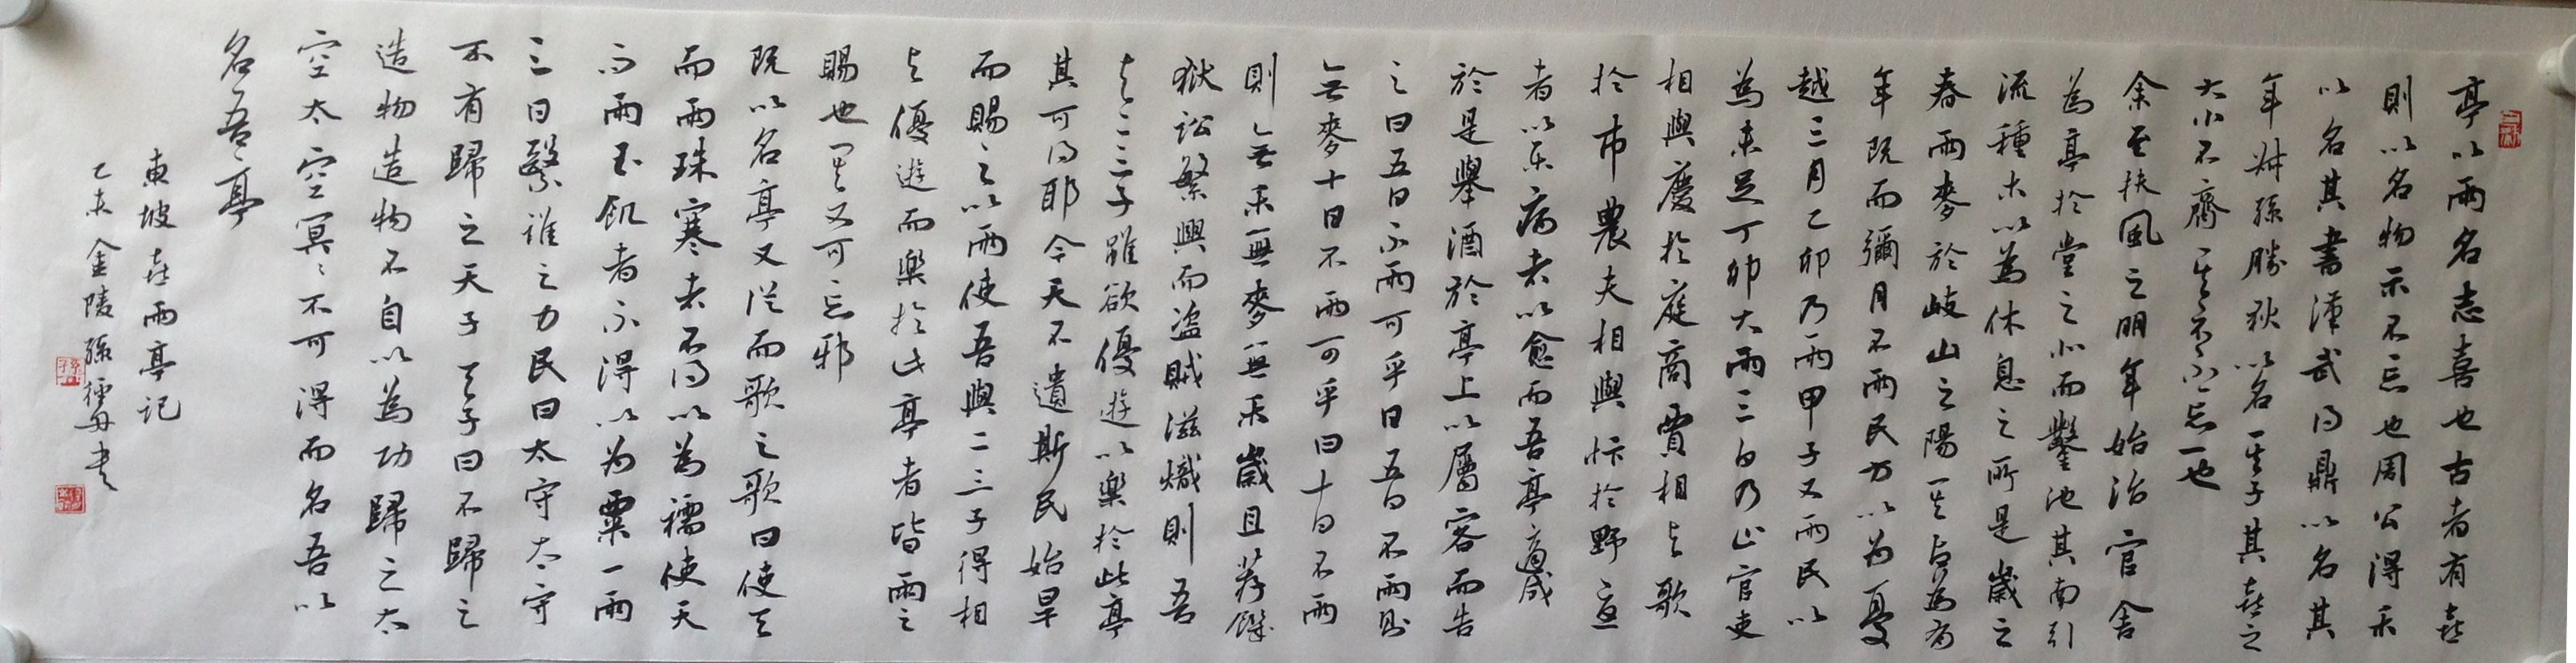 亭以雨名志喜也古者有喜
則以名物示不忘也周公得禾
以名其書漢武得鼎以名其
年叔孫勝狄以名其子其喜之
大小不齊其示不忘一也
余至扶風之明年始治官舍
為亭於堂之北而鑿池其南引
流種木以為休息之所是歲之
春雨麥於岐山之陽其占為有
年既而彌月不雨民方以为憂
越三月乙卯乃雨甲子又雨民以
為未足丁卯大雨三日乃止官吏
相與慶於庭商賈相与歌
於市農夫相與忭於野憂
者以樂病者以愈而吾亭適成
於是舉酒於亭上以屬客而告
之曰五日不雨可乎曰五日不雨則
無麥十日不雨可乎曰十日不雨
則無禾無麥無禾歲且荐饑
獄訟繁興而盜賊滋熾則吾
与二三子雖欲優遊以樂於此亭
其可得耶今天不遺斯民始旱
而賜之以雨使吾與二三子得相
与優遊而樂於此亭者皆雨之
賜也其又可忘邪
既以名亭又從而歌之歌曰使天
而雨珠寒者不得以為襦使天
而雨玉飢者不得以为粟一雨
三日繄誰之力民曰太守太守
不有歸之天子天子曰不歸之
造物造物不自以為功歸之太
空太空冥〻不可得而名吾以
名吾亭
東坡喜雨亭记
乙未金陵孫書